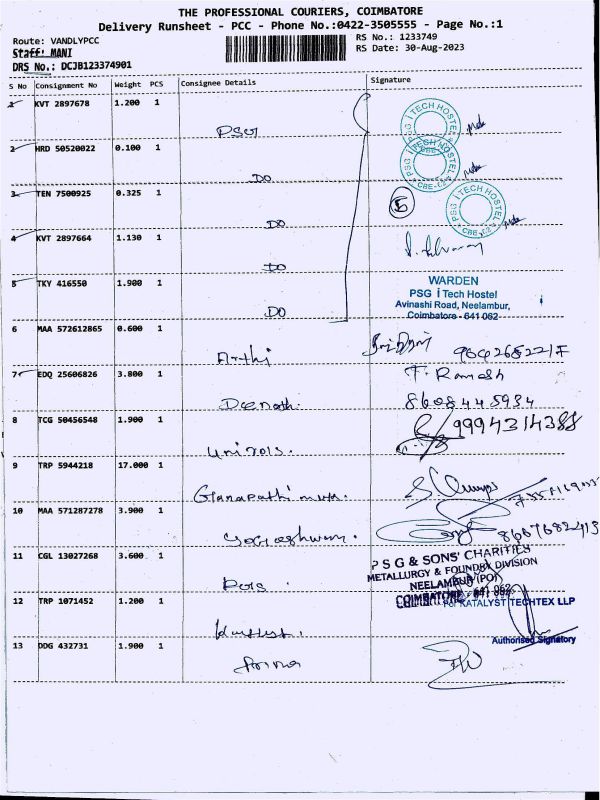 THE PROFESSIONAL COURIERS, COIMBATORE
Delivery Runsheet - PCC - Phone No.:0422-3505555 - Page No.:1
Route: VANDLYPCC RS No.: 1233749
Staff: MANI RS Date: 30-Aug-2023
DRS No.: DCJB123374901
S No Consignment No Weight PCS Consignee Details Signature
1 KVT 2897678 1.200 1
PSG I TECH HOSTEL
PSG
2 HRD 50520022 0.100 1
PSG I TECH HOSTEL
CBE-62
DO
3 TEN 7500925 0.325 1
5
PSG I TECH HOSTEL
CBE-62
DO
4 KVT 2897664 1.130 1
DO
5 TKY 416550 1.900 1
WARDEN
PSG i Tech Hostel
Avinashi Road, Neelambur,
DO Coimbatore - 641 062
6 MAA 572612865 0.600 1
Arthi
7 EDQ 25606826 3.800 1 T. Ramesh
8608445934
8 TCG 50456548 1.900 1 9994314388
9 TRP 5944218 17.000 1
10 MAA 571287278 3.900 1
8667682413
11 CGL 13027268 3.600 1
PSG & SONS' CHARITIES
METALLURGY & FOUNDRY DIVISION
NEELAMBUR (PO)
COIMBATORE - 641 062
12 TRP 1071452 1.200 1 For KATALYST TECHTEX LLP
Authorised Signatory
13 DDG 432731 1.900 1